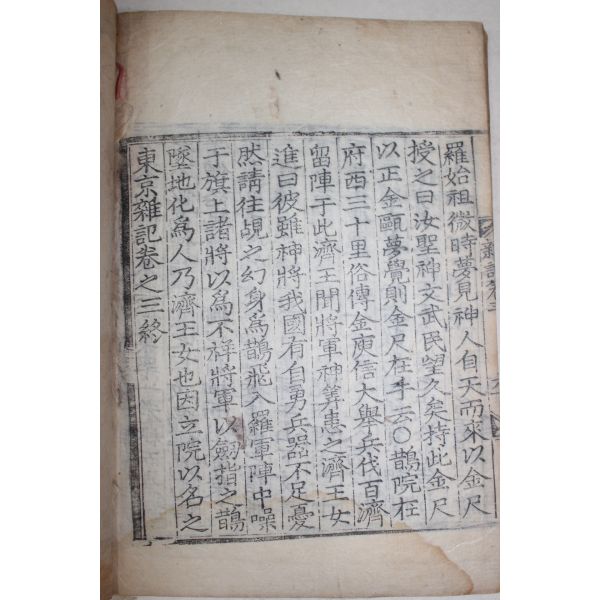 羅始祖微時夢見神人自天而來以金尺
授之曰汝聖神文武民望久矣持此金尺
以正金甌夢覺則金尺在手云〇鵲院在
府西三十里俗傳金庾信大擧兵伐百濟
留陣于此濟王聞將軍神筭患之濟王女
進曰彼雖神將我國有自勇兵器不足憂
然請往覘之幻身爲鵲飛入羅軍陣中噪
于旗上諸將以爲不祥將軍以劒指之鵲
墜地化爲人乃濟王女也因立院以名之
東京雜記卷之三終